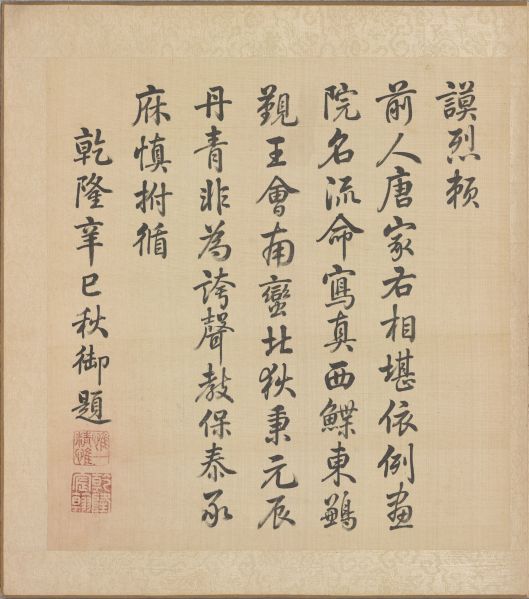 謨烈賴
前人唐家右相堪依例畫
院名流命寫真西鰈東鶼
覲王會南蠻北狄秉元辰
丹青非為誇聲教保泰承
庥慎拊循
乾隆辛巳秋御題
惟精惟一
乾隆宸翰